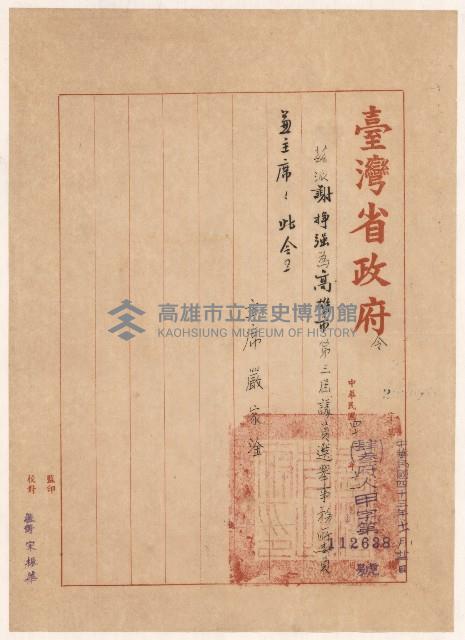 臺灣省政府令
中華民國四十三年十月廿日
肆叁府人甲字第
112638
號
茲派謝掙强為高雄市第三屆議員選舉事務所委員
兼主席，此令。
主席 嚴家淦
監印
校對
宋振華
高雄市立歷史博物館
KAOHSIUNG MUSEUM OF HISTORY